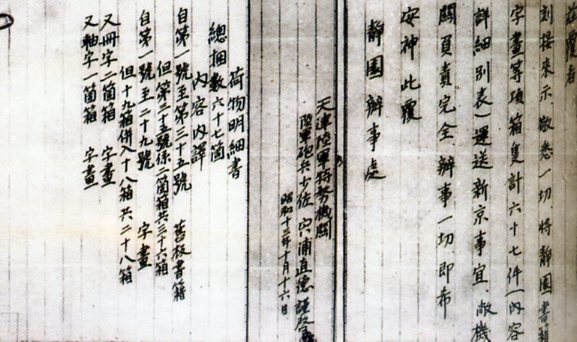 敬覆者
刻接來示敬悉一切將靜園書籍
字畫等項箱隻計六十七件(內容
詳細別表)運送新京事宜敝機
關負責完全辦事一切即希
安神此覆
靜園辦事處
天津陸軍特務機關
陸軍砲兵少佐 浦直德謹啓
昭和十二年十月十六日
荷物明細書
總捆數六十七箇
內容內譯
自第一號至第三十五號 舊板書籍
但第二十五號係二箇箱共三十六箱
自第一號至二十九號 字畫
但十九箱併入十八箱共二十八箱
又冊字二箇箱 字畫
又軸字一箇箱 字畫